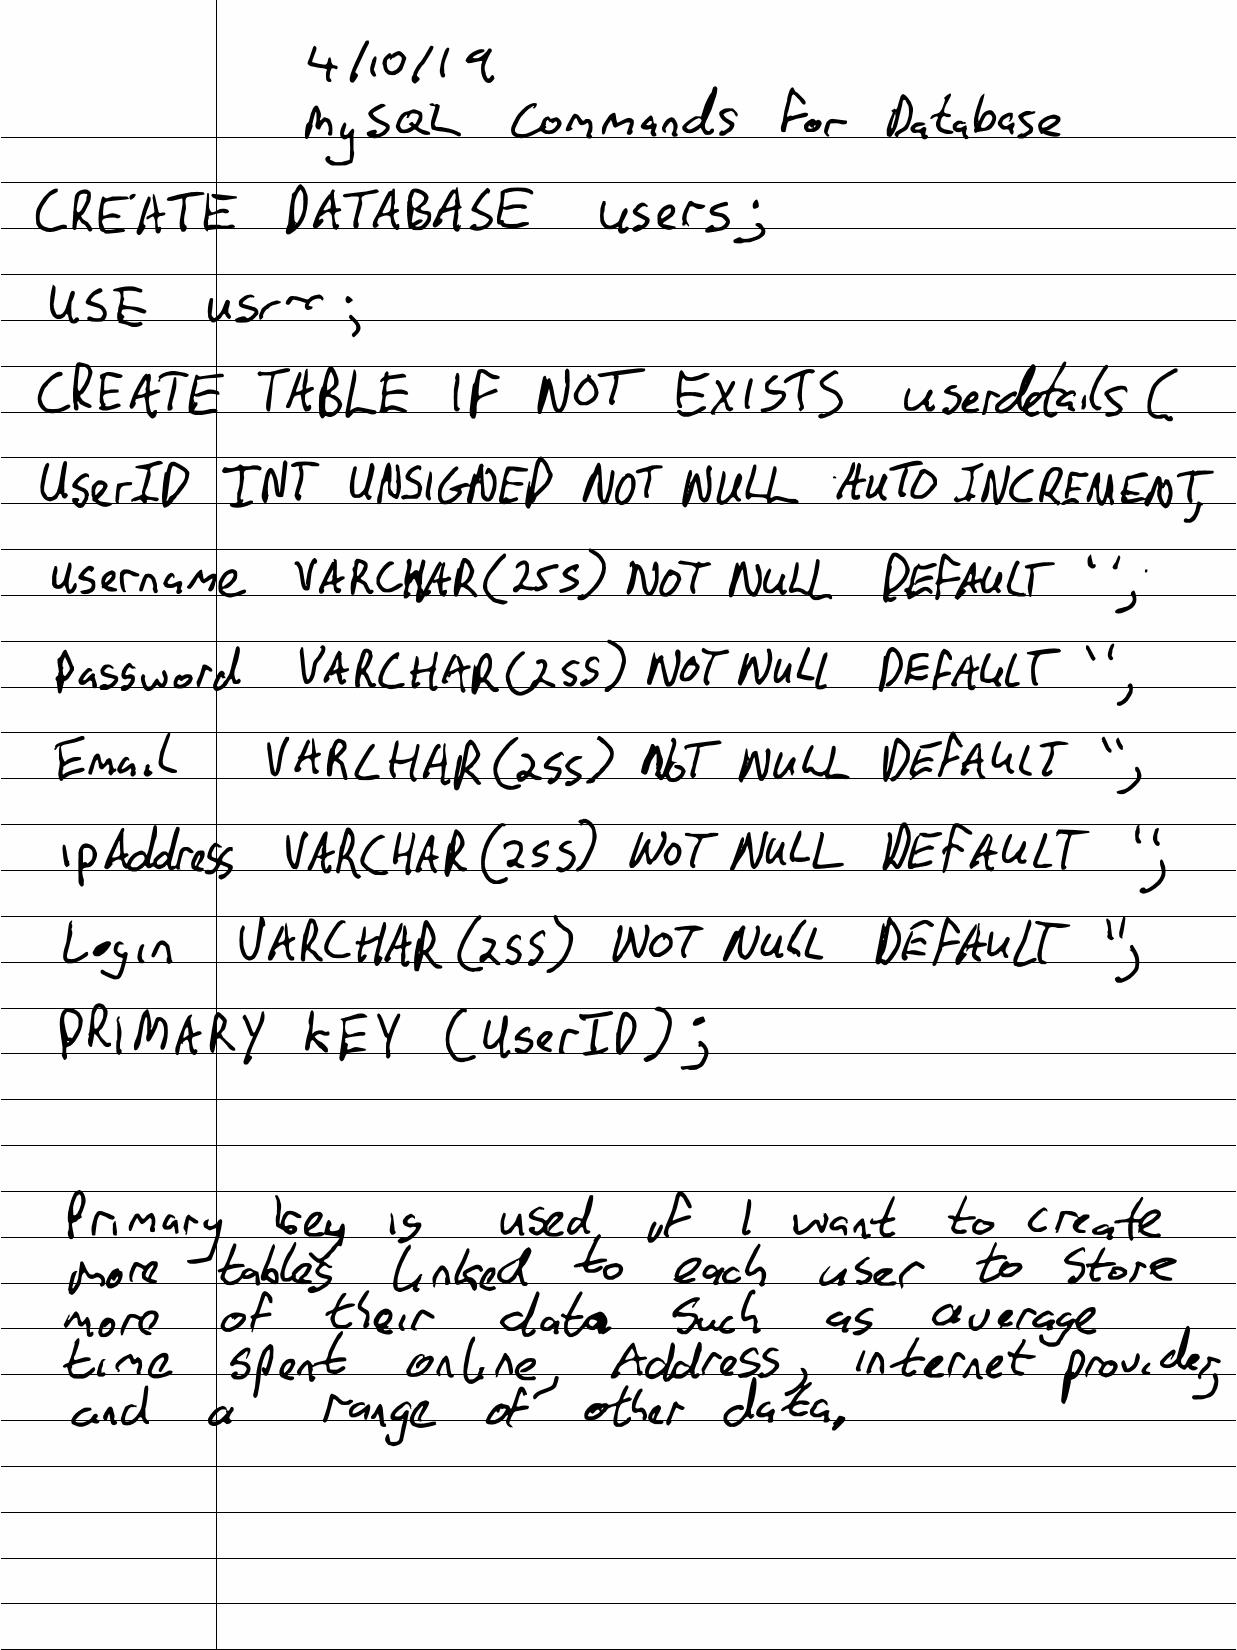 4/10/19
MySQL Commands For Database
CREATE DATABASE users;
USE ;
CREATE TABLE IF NOT EXISTS userdetails (
UserID INT UNSIGNED NOT NULL AUTO INCREMENT,
username VARCHAR(255) NOT NULL DEFAULT '',
Password VARCHAR(255) NOT NULL DEFAULT '',
Email VARCHAR(255) NOT NULL DEFAULT '',
ipAddress VARCHAR(255) NOT NULL DEFAULT '',
Login VARCHAR(255) NOT NULL DEFAULT '',
PRIMARY KEY (UserID);
Primary key is used if I want to create
more tables linked to each user to store
more of their data such as average
time spent online, Address, internet provider,
and a range of other data.